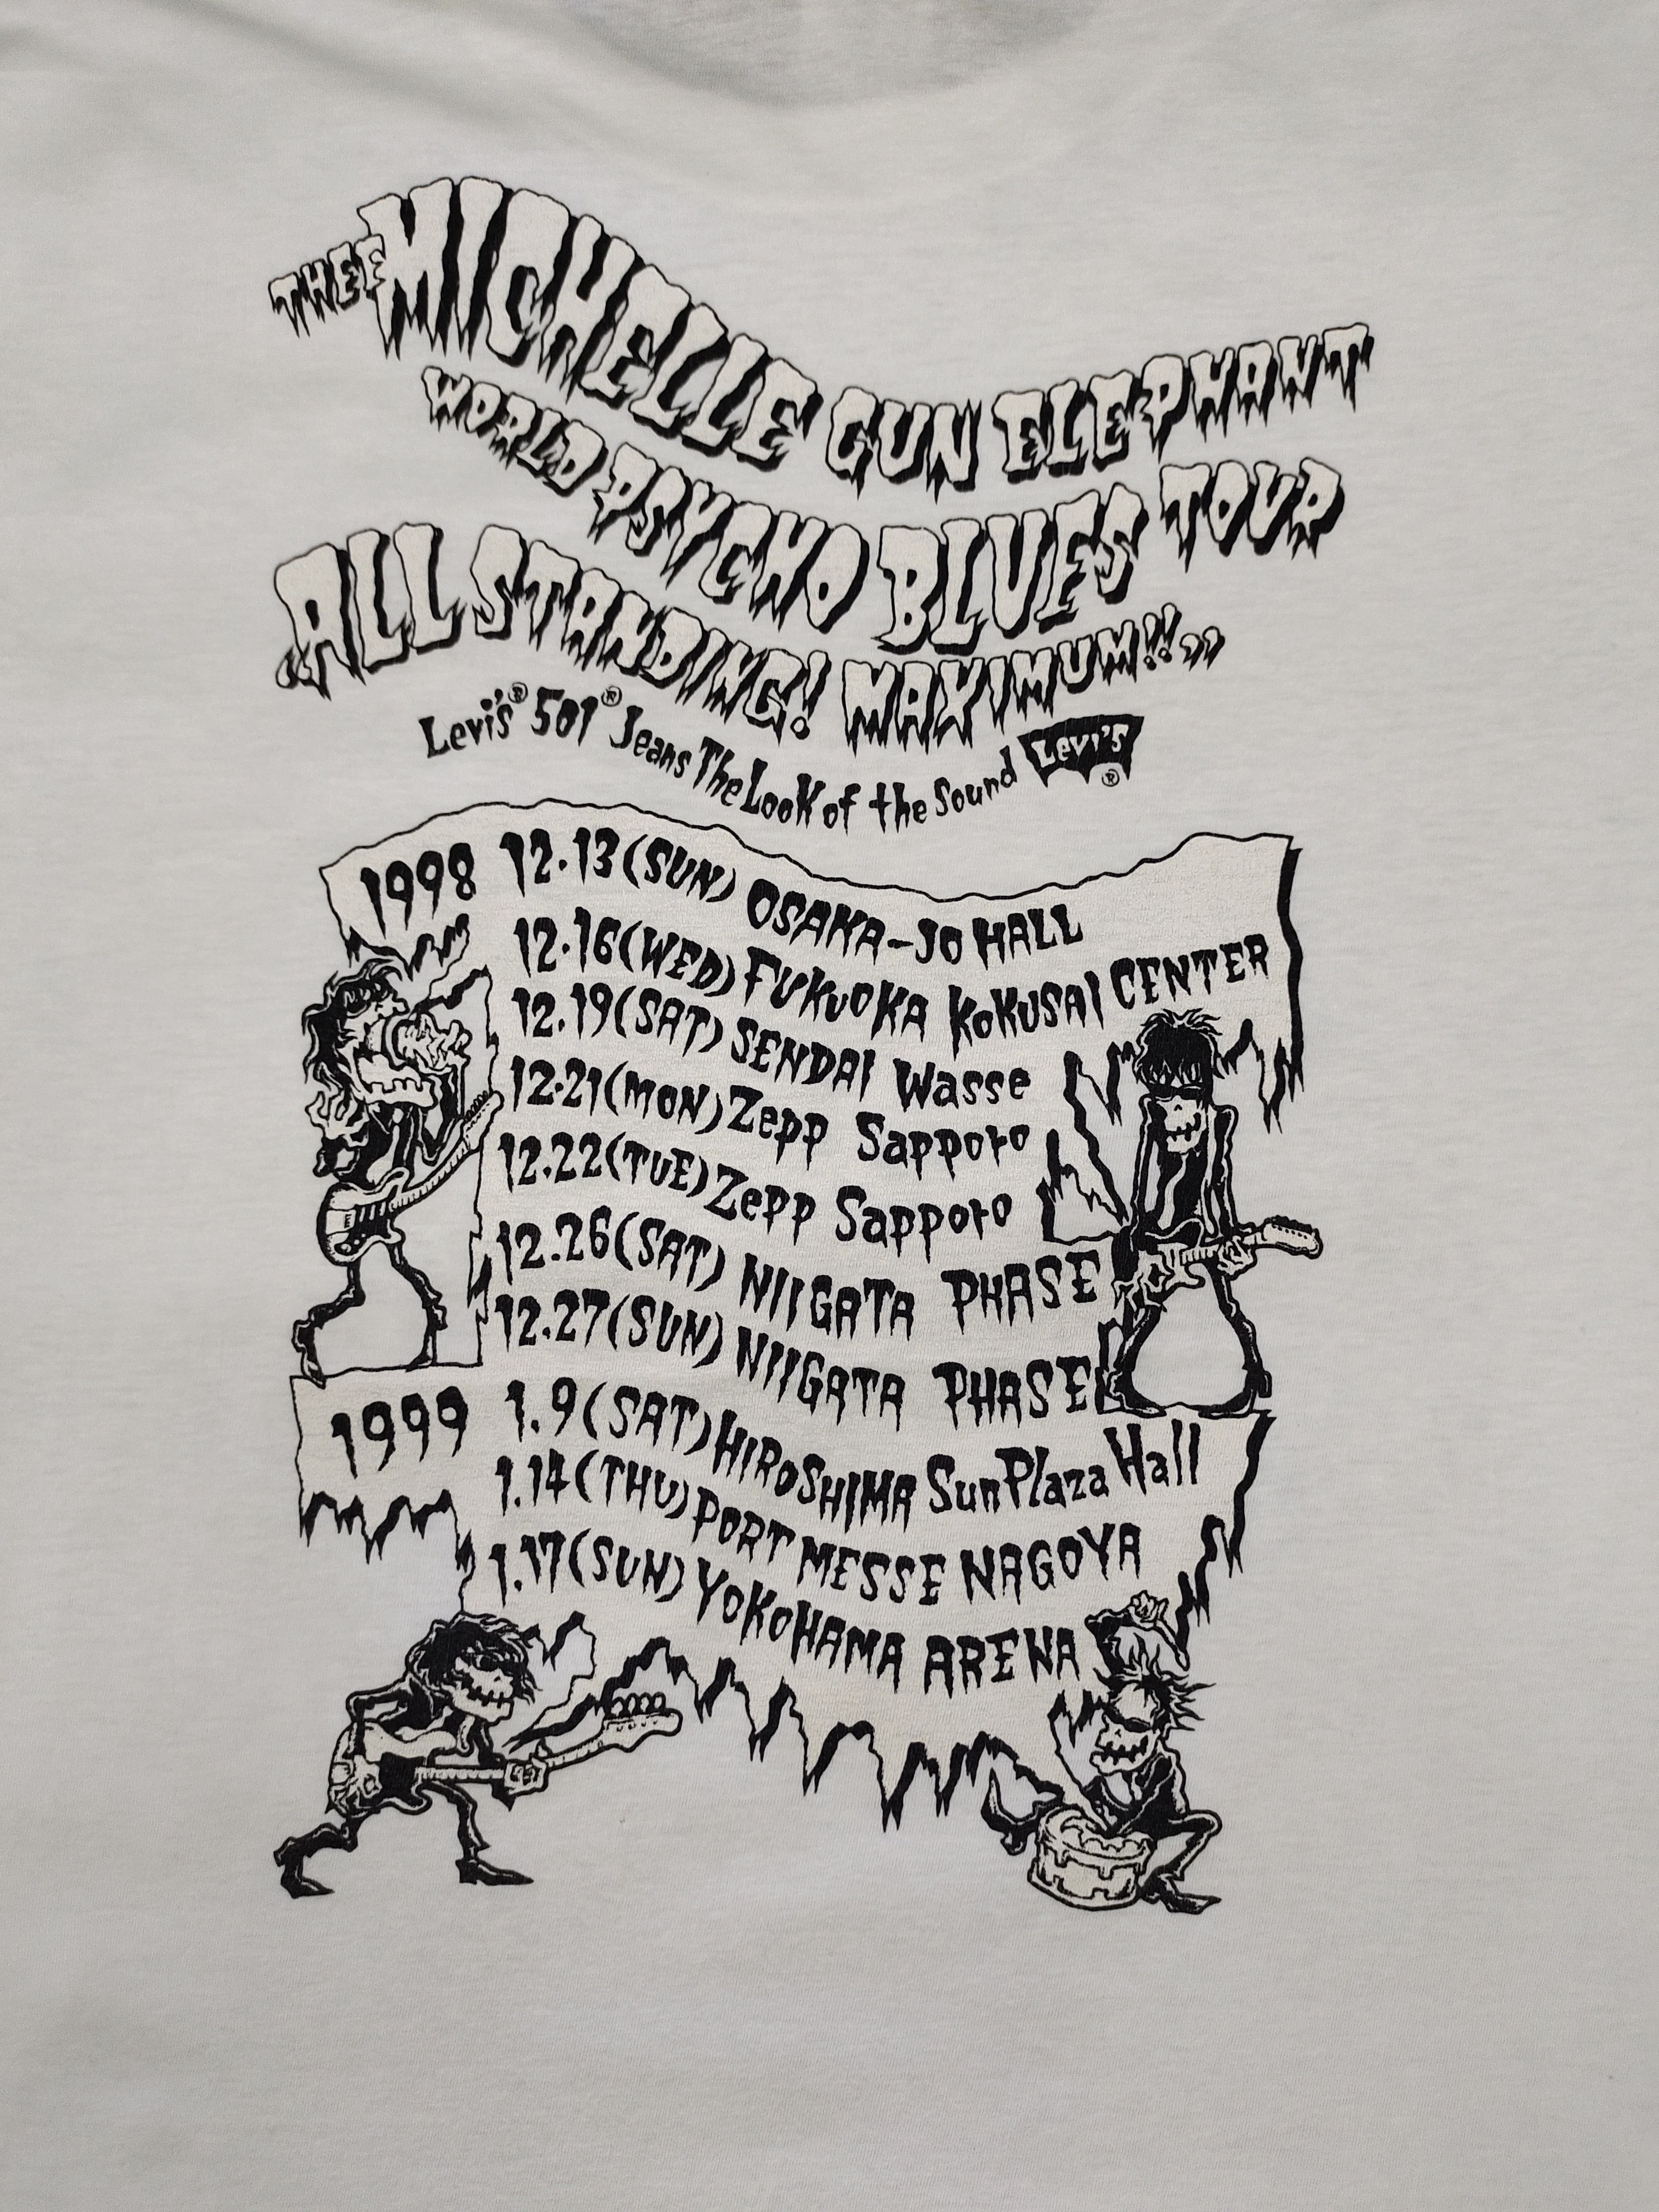 THEE MICHELLE GUN ELEPHANT
WORLD PSYCHO BLUES TOUR
"ALL STANDING! MAXIMUM!!"
Levi's® 501® Jeans The Look of the Sound Levi's®
1998 12.13(SUN) OSAKA-JO HALL
12.16(WED) FUKUOKA KOKUSAI CENTER
12.19(SAT) SENDAI Wasse
12.21(MON) Zepp Sapporo
12.22(TUE) Zepp Sapporo
12.26(SAT) NIIGATA PHASE
12.27(SUN) NIIGATA PHASE
1999 1.9(SAT) HIROSHIMA SunPlaza Hall
1.14(THU) PORT MESSE NAGOYA
1.17(SUN) YOKOHAMA ARENA